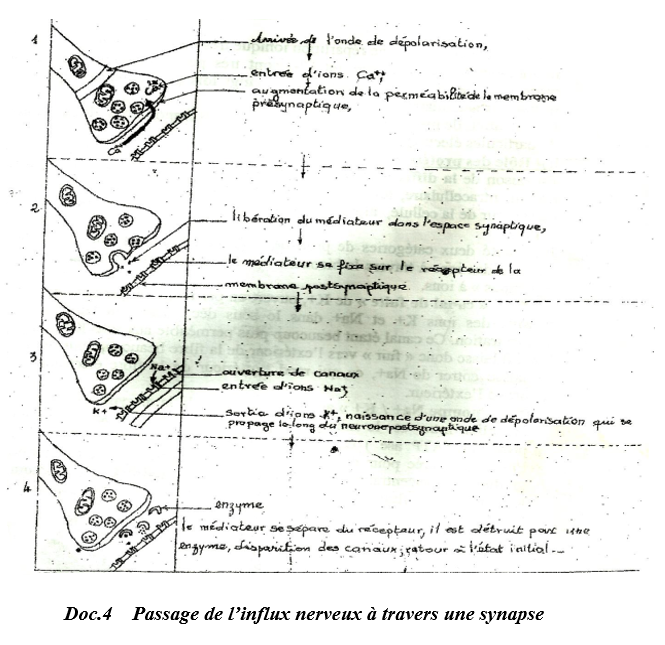 1
Arrivée de l'onde de dépolarisation,
entrée d'ions Ca++,
augmentation de la perméabilité de la membrane
présynaptique,
Ca++
2
libération du médiateur dans l'espace synaptique,
le médiateur se fixe sur le récepteur de la
membrane postsynaptique.
3
Na+
K+
ouverture de canaux
entrée d'ions Na+,
sortie d'ions K+, naissance d'une onde de dépolarisation qui se
propage le long du neurone postsynaptique
4
enzyme
le médiateur se sépare du récepteur, il est détruit par une
enzyme, disparition des canaux, retour à l'état initial
Doc.4 Passage de l'influx nerveux à travers une synapse